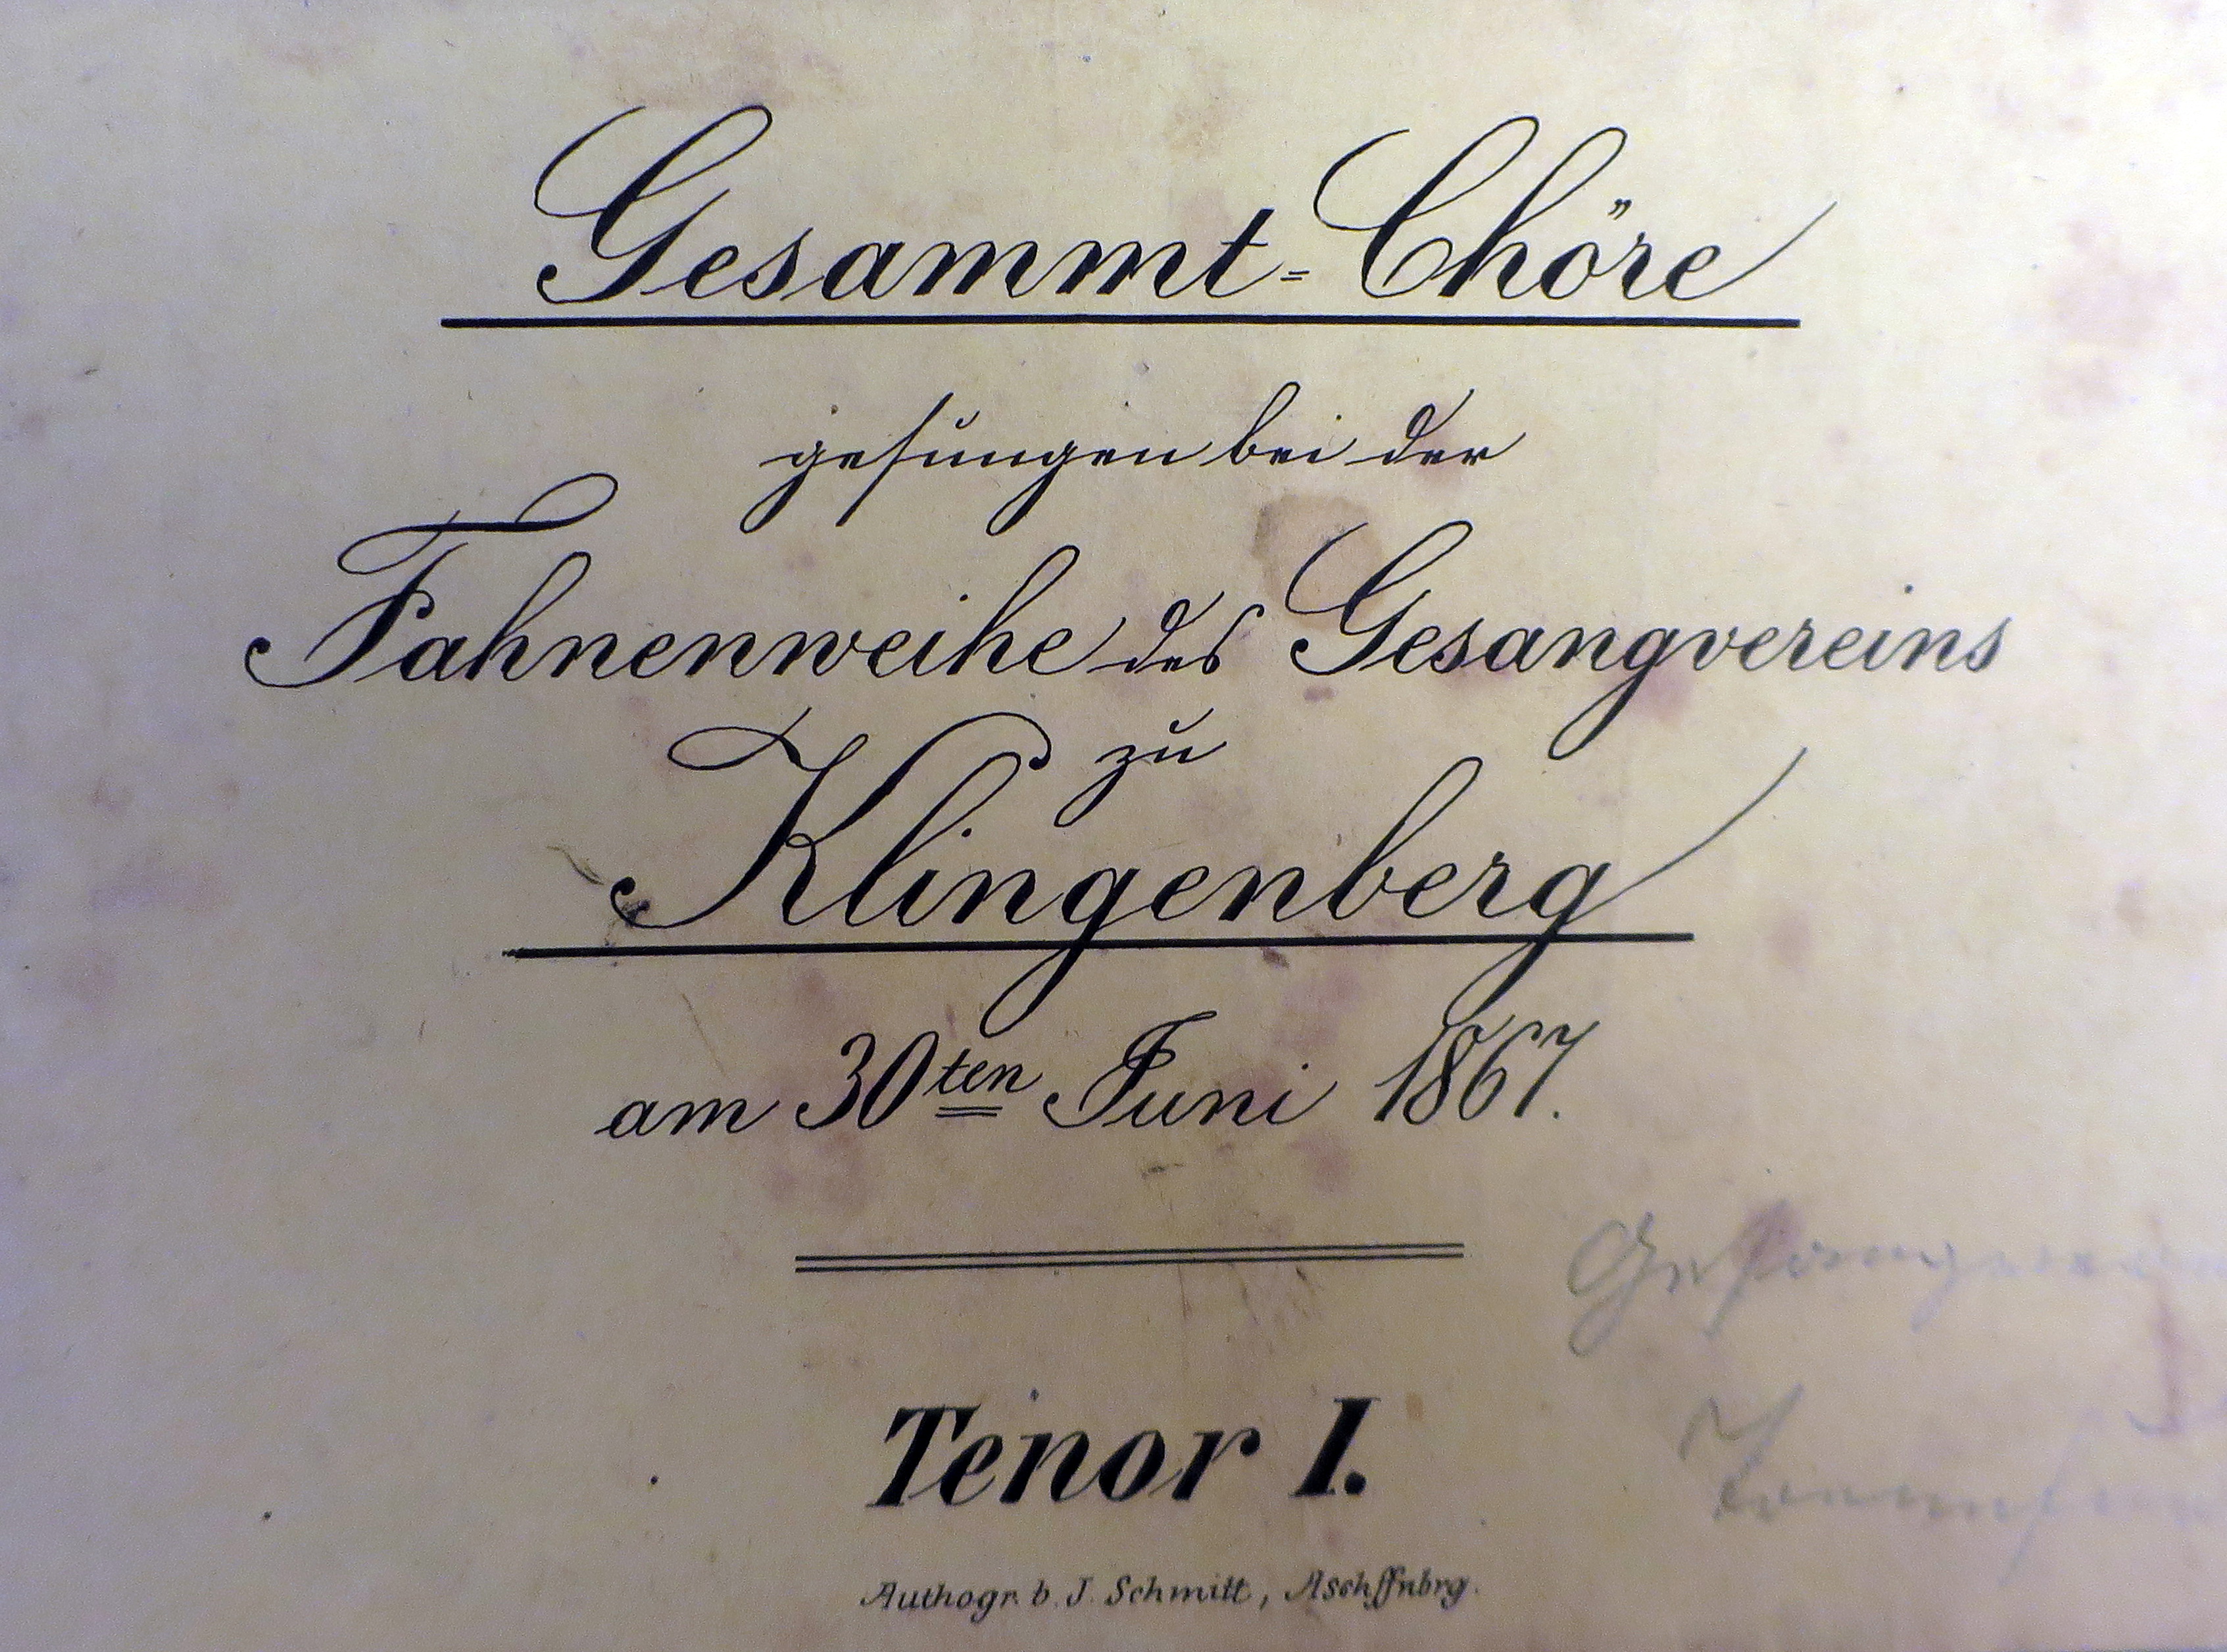 Gesammt-Chöre
gesungen bei der
Fahnenweihe des Gesangvereins
zu
Klingenberg
am 30ten Juni 1867.
Tenor I.
Authogr. b. J. Schmitt, Aschffnbrg.